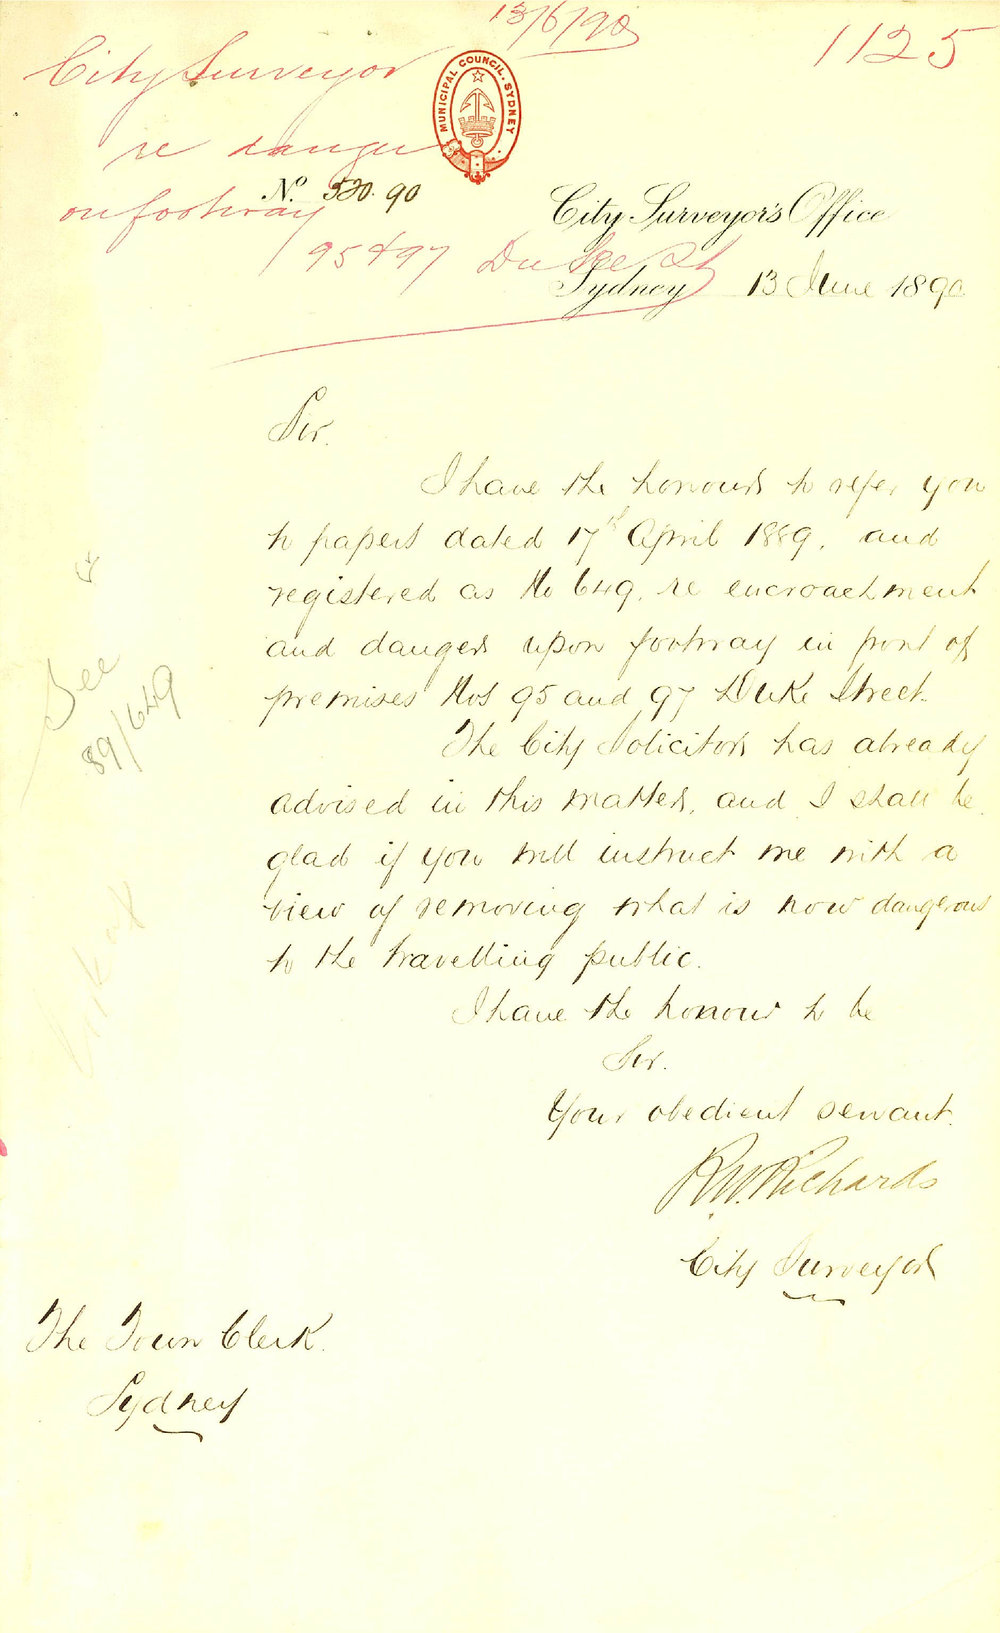 13/6/90
1125
City Surveyor
re danger
on footway
95 & 97 Duke St
MUNICIPAL COUNCIL. SYDNEY
No. 520. 90
City Surveyor's Office
Sydney 13 June 1890
Sir.
I have the honour to refer you
to papers dated 17th April 1889, and
registered as No 649, re encroachment
and danger upon footway in front of
premises Nos 95 and 97 Duke Street.
The City Solicitor has already
advised in this matter, and I shall be
glad if you will instruct me with a
view of removing what is now dangerous
to the travelling public.
I have the honour to be
Sir.
Your obedient servant.
R.W. Richards
City Surveyor
The Town Clerk.
Sydney
See
89/649